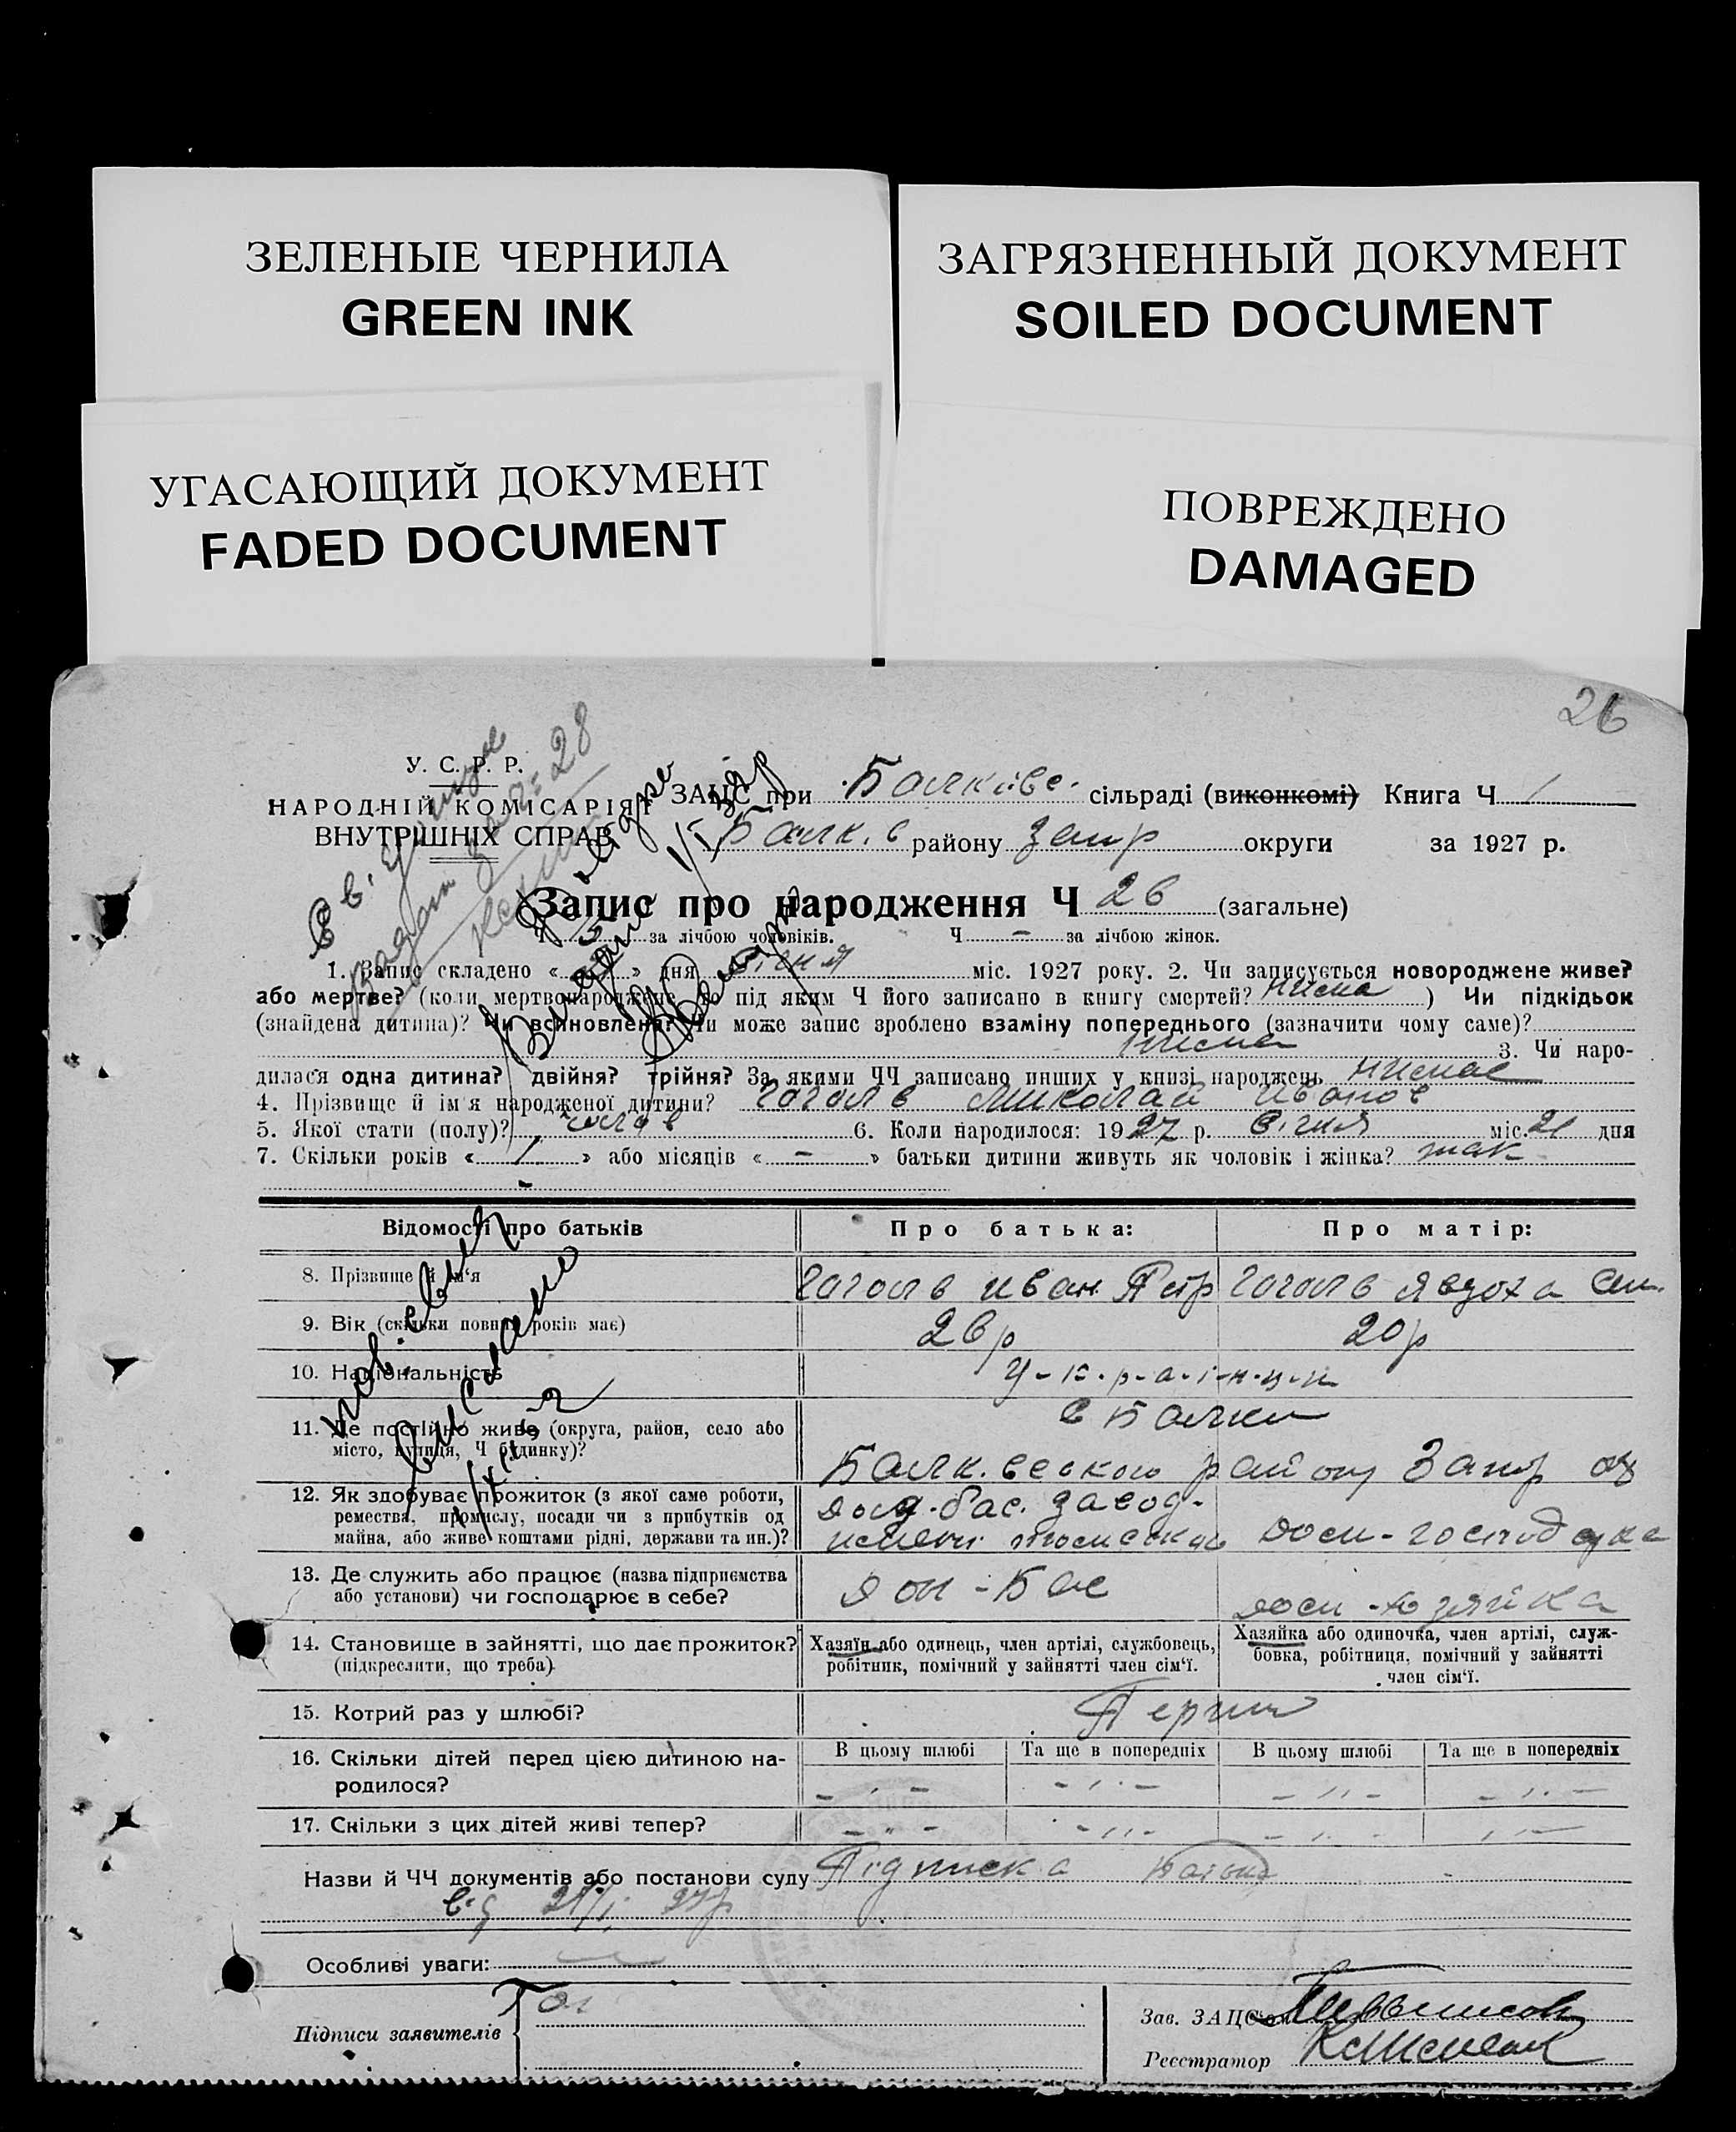 ЗЕЛЕНЫЕ ЧЕРНИЛА
GREEN INK
ЗАГРЯЗНЕННЫЙ ДОКУМЕНТ
SOILED DOCUMENT
УГАСАЮЩИЙ ДОКУМЕНТ
FADED DOCUMENT
ПОВРЕЖДЕНО
DAMAGED
26
У. С. Р. Р.
НАРОДНІЙ КОМІСАРІЯТ
ВНУТРІШНІХ СПРАВ
ЗАЦС при сільраді (виконкомі) Книга Ч 1
Балк. в району Запр округи за 1927 р.
Запис про народження Ч 26 (загальне)
Ч 15 за лічбою чоловіків. Ч - за лічбою жінок.
1. Запис складено « » дня січня міс. 1927 року. 2. Чи записується новороджене живе?
або мертве? (коли мертвонароджене, то під яким Ч його записано в книгу смертей? ) Чи підкідьок
(знайдена дитина)? Чи всиновлене? Чи може запис зроблено взаміну попереднього (зазначити чому саме)?
3. Чи наро-
дилася одна дитина? двійня? трійня? За якими ЧЧ записано инших у книзі народжень
4. Прізвище й ім'я народженої дитини? Гоголь Миколай Иванов
5. Якої стати (полу)? чолов 6. Коли народилося: 1927 р. січня міс. 21 дня
7. Скільки років « 1 » або місяців « - » батьки дитини живуть як чоловік і жінка? так
Відомості про батьків
Про батька:
Про матір:
8. Прізвище й ім'я
Гоголь Иван Петр
Гоголь Явдоха Сем.
9. Вік (скільки повних років має)
26 р
20 р
10. Національність
У-к-р-а-ї-н-ц-и
11. Де постійно живе (округа, район, село або
місто, вулиця, Ч будинку)?
с Балки
Балк. району Запр ок
12. Як здобуває прожиток (з якої саме роботи,
ремества, промислу, посади чи з прибутків од
майна, або живе коштами рідні, держави та ин.)?
Дом-господарка
13. Де служить або працює (назва підприємства
або установи) чи господарює в себе?
Дон-Бас
Дом-хозяйка
14. Становище в зайнятті, що дає прожиток?
(підкреслити, що треба).
Хазяїн або одинець, член артілі, службовець,
робітник, помічний у зайнятті член сім'ї.
Хазяйка або одиночка, член артілі, служ-
бовка, робітниця, помічний у зайнятті
член сім'ї.
15. Котрий раз у шлюбі?
Перший
16. Скільки дітей перед цією дитиною на-
родилося?
В цьому шлюбі
Та ще в попередніх
В цьому шлюбі
Та ще в попередніх
17. Скільки з цих дітей живі тепер?
Назви й ЧЧ документів або постанови суду Підписка
від 21/I 27р
Особливі уваги:
Підписи заявителів
Зав. ЗАЦС'ом
Реєстратор